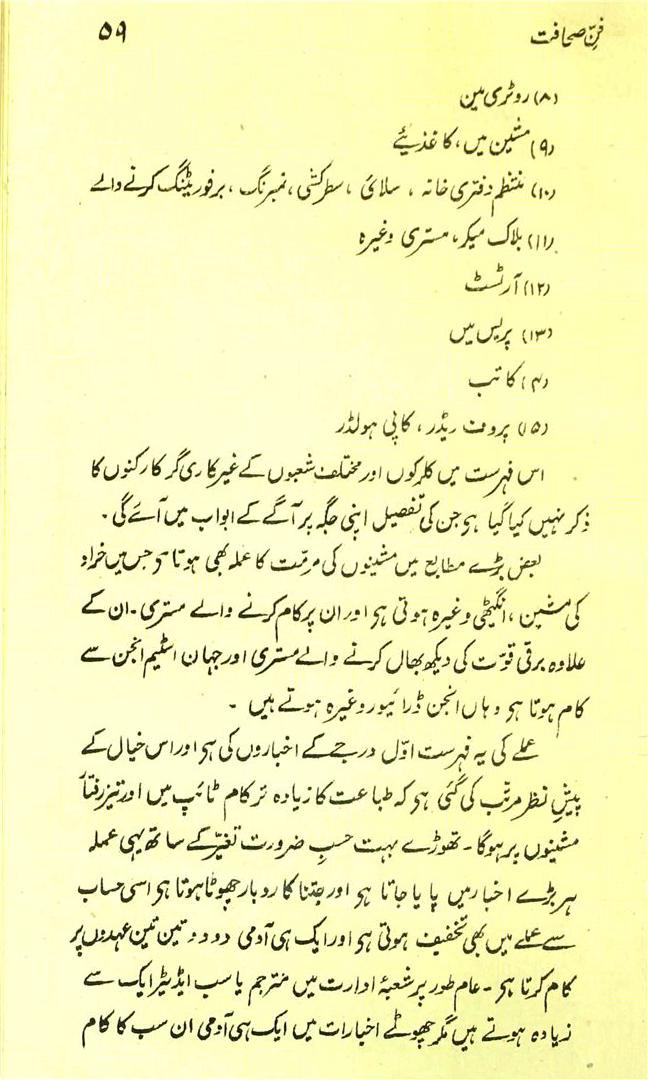 فنِّ صحافت ۵۹
(۸) روٹری مین
(۹) مشین میں، کاغذیئے
(۱۰) منتظم دفتری خانہ ، سلائی ، سطرکشی، نمبرنگ، برفوریٹنگ کرنے والے
(۱۱) بلاک میکر، مستری وغیرہ
(۱۲) آرٹسٹ
(۱۳) پریس میں
(۱۴) کاتب
(۱۵) پروف ریڈر، کاپی ہولڈر
اس فہرست میں کلرکوں اور مختلف شعبوں کے غیر کاری گر کارکنوں کا
ذکر نہیں کیا گیا ہے جن کی تفصیل اپنی جگہ پر آگے کے ابواب میں آئے گی۔
بعض بڑے مطابع میں مشینوں کی مرمّت کا عملہ بھی ہوتا ہے جس میں خراد
کی مشین، انگیٹھی وغیرہ ہوتی ہے اور ان پر کام کرنے والے مستری۔ ان کے
علاوہ برقی قوّت کی دیکھ بھال کرنے والے مستری اور جہان اسٹیم انجن سے
کام ہوتا ہے وہاں انجن ڈرائیور وغیرہ ہوتے ہیں ۔
عملے کی یہ فہرست اوّل درجے کے اخباروں کی ہے اور اس خیال کے
پیشِ نظر مرتّب کی گئی ہے کہ طباعت کا زیادہ تر کام ٹائپ میں اور تیز رفتار
مشینوں پر ہوگا۔ تھوڑے بہت حسبِ ضرورت تغیّر کے ساتھ یہی عملہ
ہر بڑے اخبار میں پایا جاتا ہے اور جتنا کاروبار چھوٹا ہوتا ہے اسی حساب
سے عملے میں بھی تخفیف ہوتی ہے اور ایک ہی آدمی دو دو تین تین عہدوں پر
کام کرتا ہے۔ عام طور پر شعبۂ ادارت میں مترجم یا سب ایڈیٹر ایک سے
زیادہ ہوتے ہیں مگر چھوٹے اخبارات میں ایک ہی آدمی ان سب کا کام